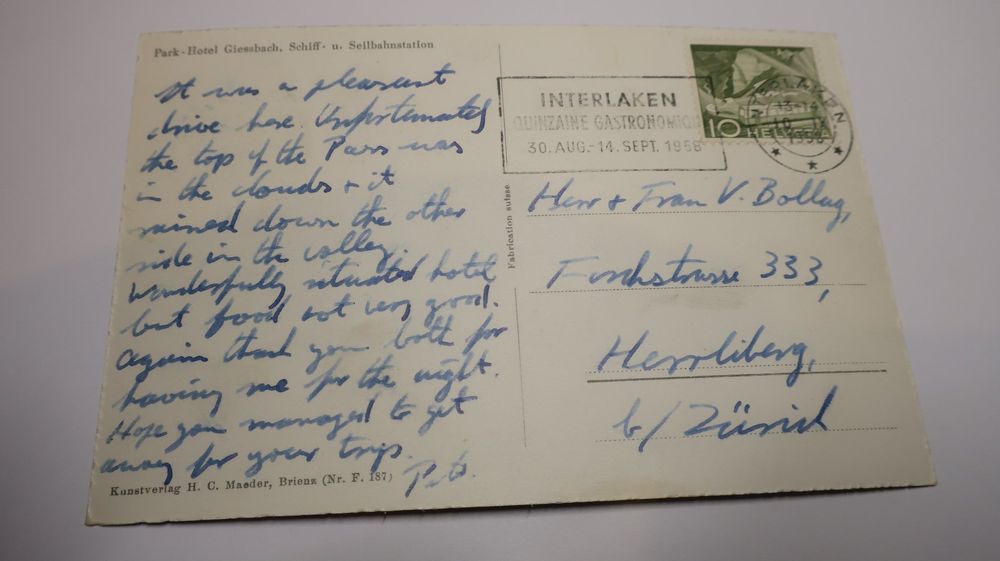 Park-Hotel Giessbach, Schiff- u. Seilbahnstation
It was a pleasant
drive here. Unfortunately
the top of the Pass was
in the clouds & it
rained down the other
side in the valley.
Wonderfully situated hotel
but food not very good.
Again thank you both for
having me for the night.
Hope you managed to get
away for your trip.
Kunstverlag H. C. Maeder, Brienz (Nr. F. 187)
Fabrication suisse
INTERLAKEN
QUINZAINE GASTRONOMIQUE
30. AUG.-14. SEPT. 1958
10 HELVETIA
INTERLAKEN
Herr & Frau V. Bollag,
333,
Herrliberg,
b/ Zürich